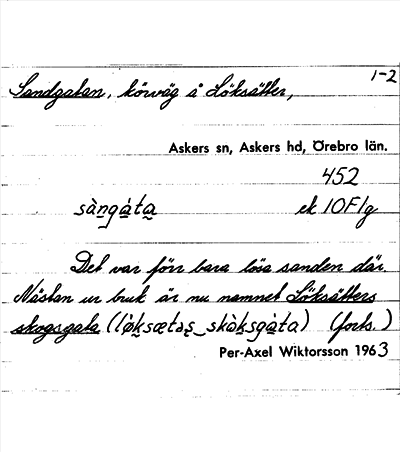 1-2
Sandgatan, körväg å Löksätter,
Askers sn, Askers hd, Örebro län.
452
sàngáta ek 10F1g
Det var förr bara lösa sanden där.
Nästan ur bruk är nu namnet Löksätters
skogsgata (lǿksætəs_skòksgàta) (forts.)
Per-Axel Wiktorsson 1963